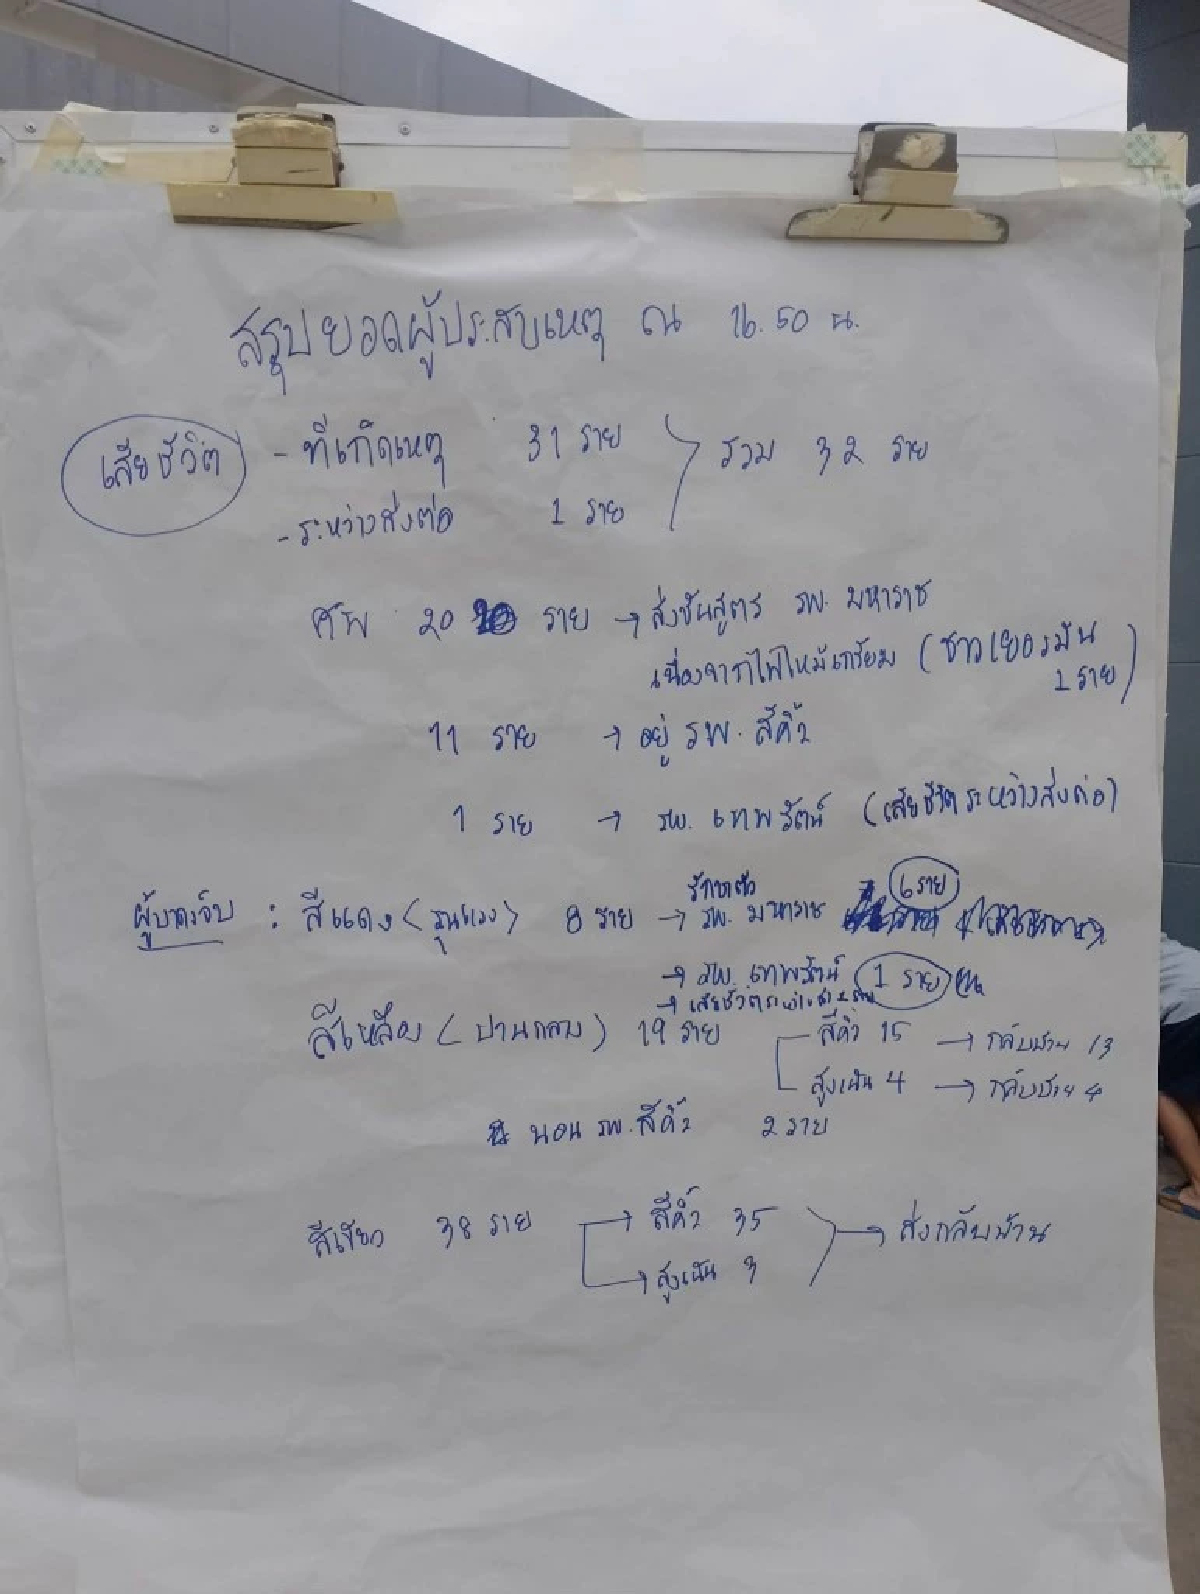 สรุปยอดผู้ประสบเหตุ ณ 16.50 น.
เสียชีวิต - ที่เกิดเหตุ 31 ราย รวม 32 ราย
- ระหว่างส่งต่อ 1 ราย
ศพ 20 ราย → ส่งชันสูตร รพ. มหาราช
เนื่องจากไฟไหม้เกรียม (ชาวเยอรมัน 1 ราย)
11 ราย → อยู่ รพ. สีคิ้ว
1 ราย → รพ. เทพรัตน์ (เสียชีวิตระหว่างส่งต่อ)
ผู้บาดเจ็บ : สีแดง (รุนแรง) 8 ราย → รักษาตัว รพ. มหาราช 6 ราย
→ รพ. เทพรัตน์ 1 ราย
→ เสียชีวิตระหว่าง 1 ราย
สีเหลือง (ปานกลาง) 19 ราย สีคิ้ว 15 → กลับบ้าน 13
สูงเนิน 4 → กลับบ้าน 4
นอน รพ. สีคิ้ว 2 ราย
สีเขียว 38 ราย → สีคิ้ว 35 → ส่งกลับบ้าน
→ สูงเนิน 3